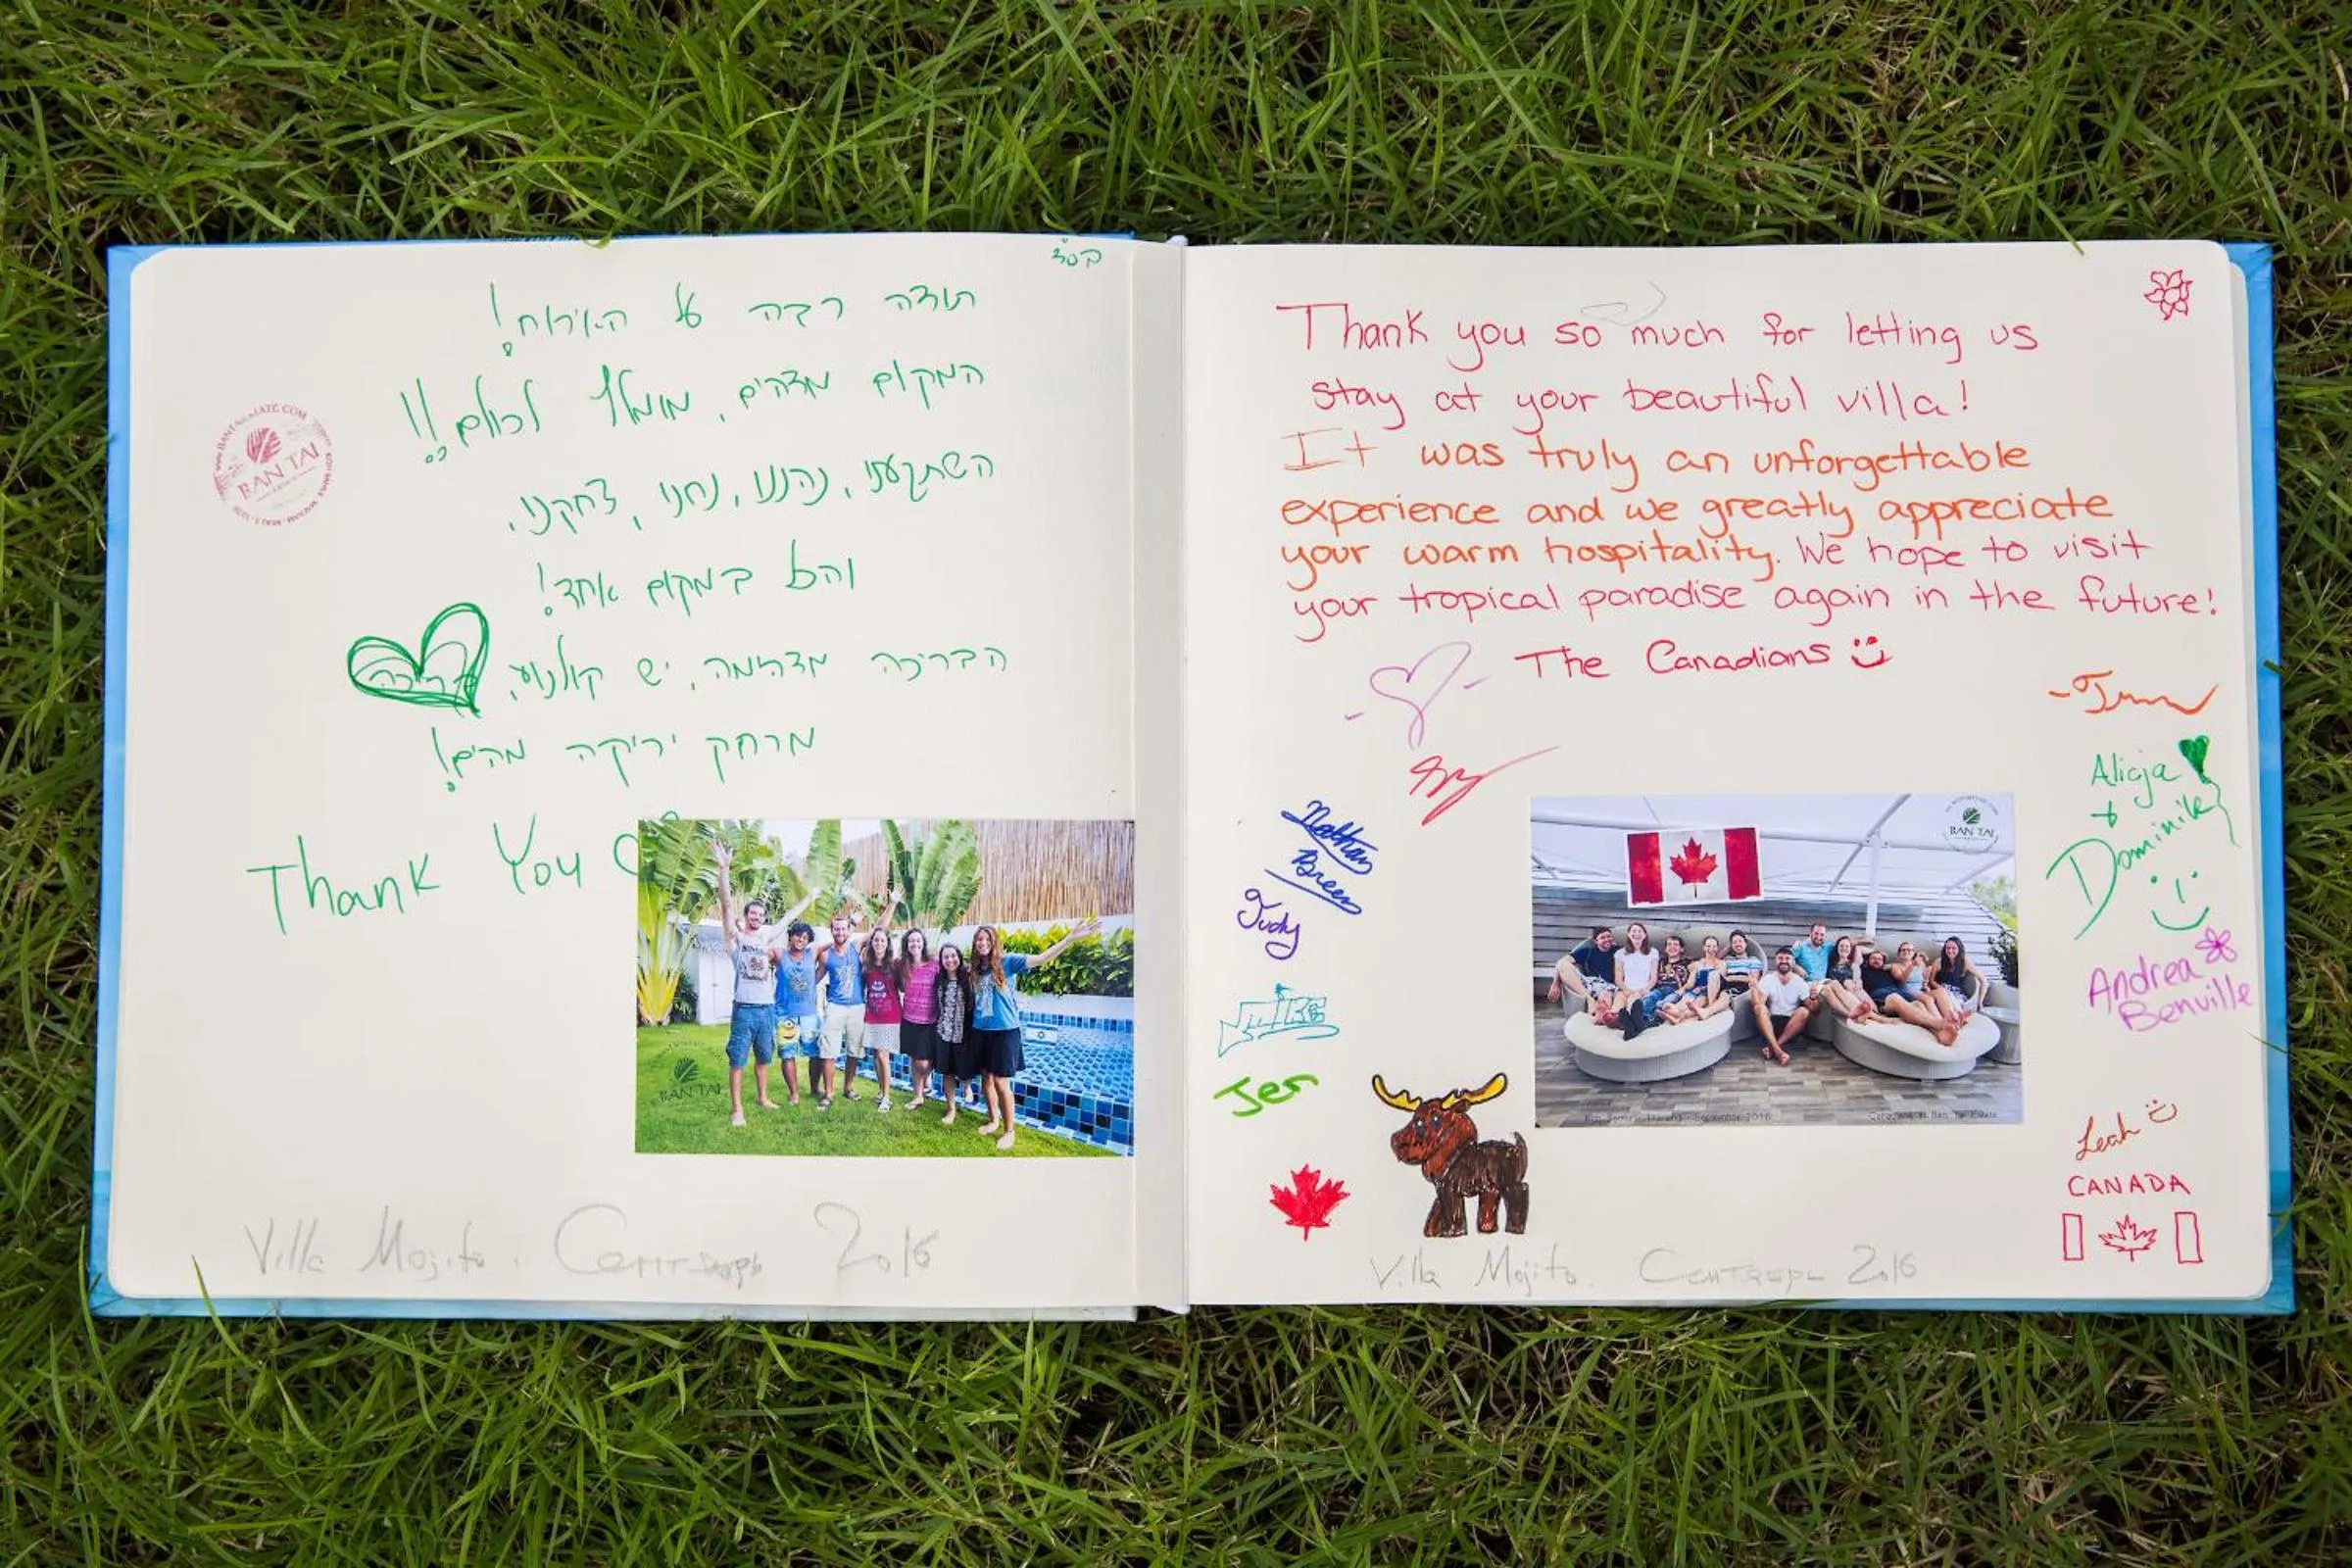 בס"ד
תודה רבה על האירוח!
המקום מדהים, מומלץ לכולם!!
השתקענו, נהננו, נחנו, צחקנו,
והכל במקום אחד!
הבריכה מדהימה, יש קולנוע,
מרחק יריקה מהים!
Thank You
BAN TAI
BAN TAI
Villa Mojito. Сентябрь 2016
Thank you so much for letting us
stay at your beautiful villa!
It was truly an unforgettable
experience and we greatly appreciate
your warm hospitality. We hope to visit
your tropical paradise again in the future!
The Canadians
Nathan
Breen
Judy
Jer
BAN TAI
Koh Samui, Thailand - September 2016
Alicja
+
Dominik
Andrea
Benville
Leah
CANADA
Villa Mojito. Сентябрь 2016